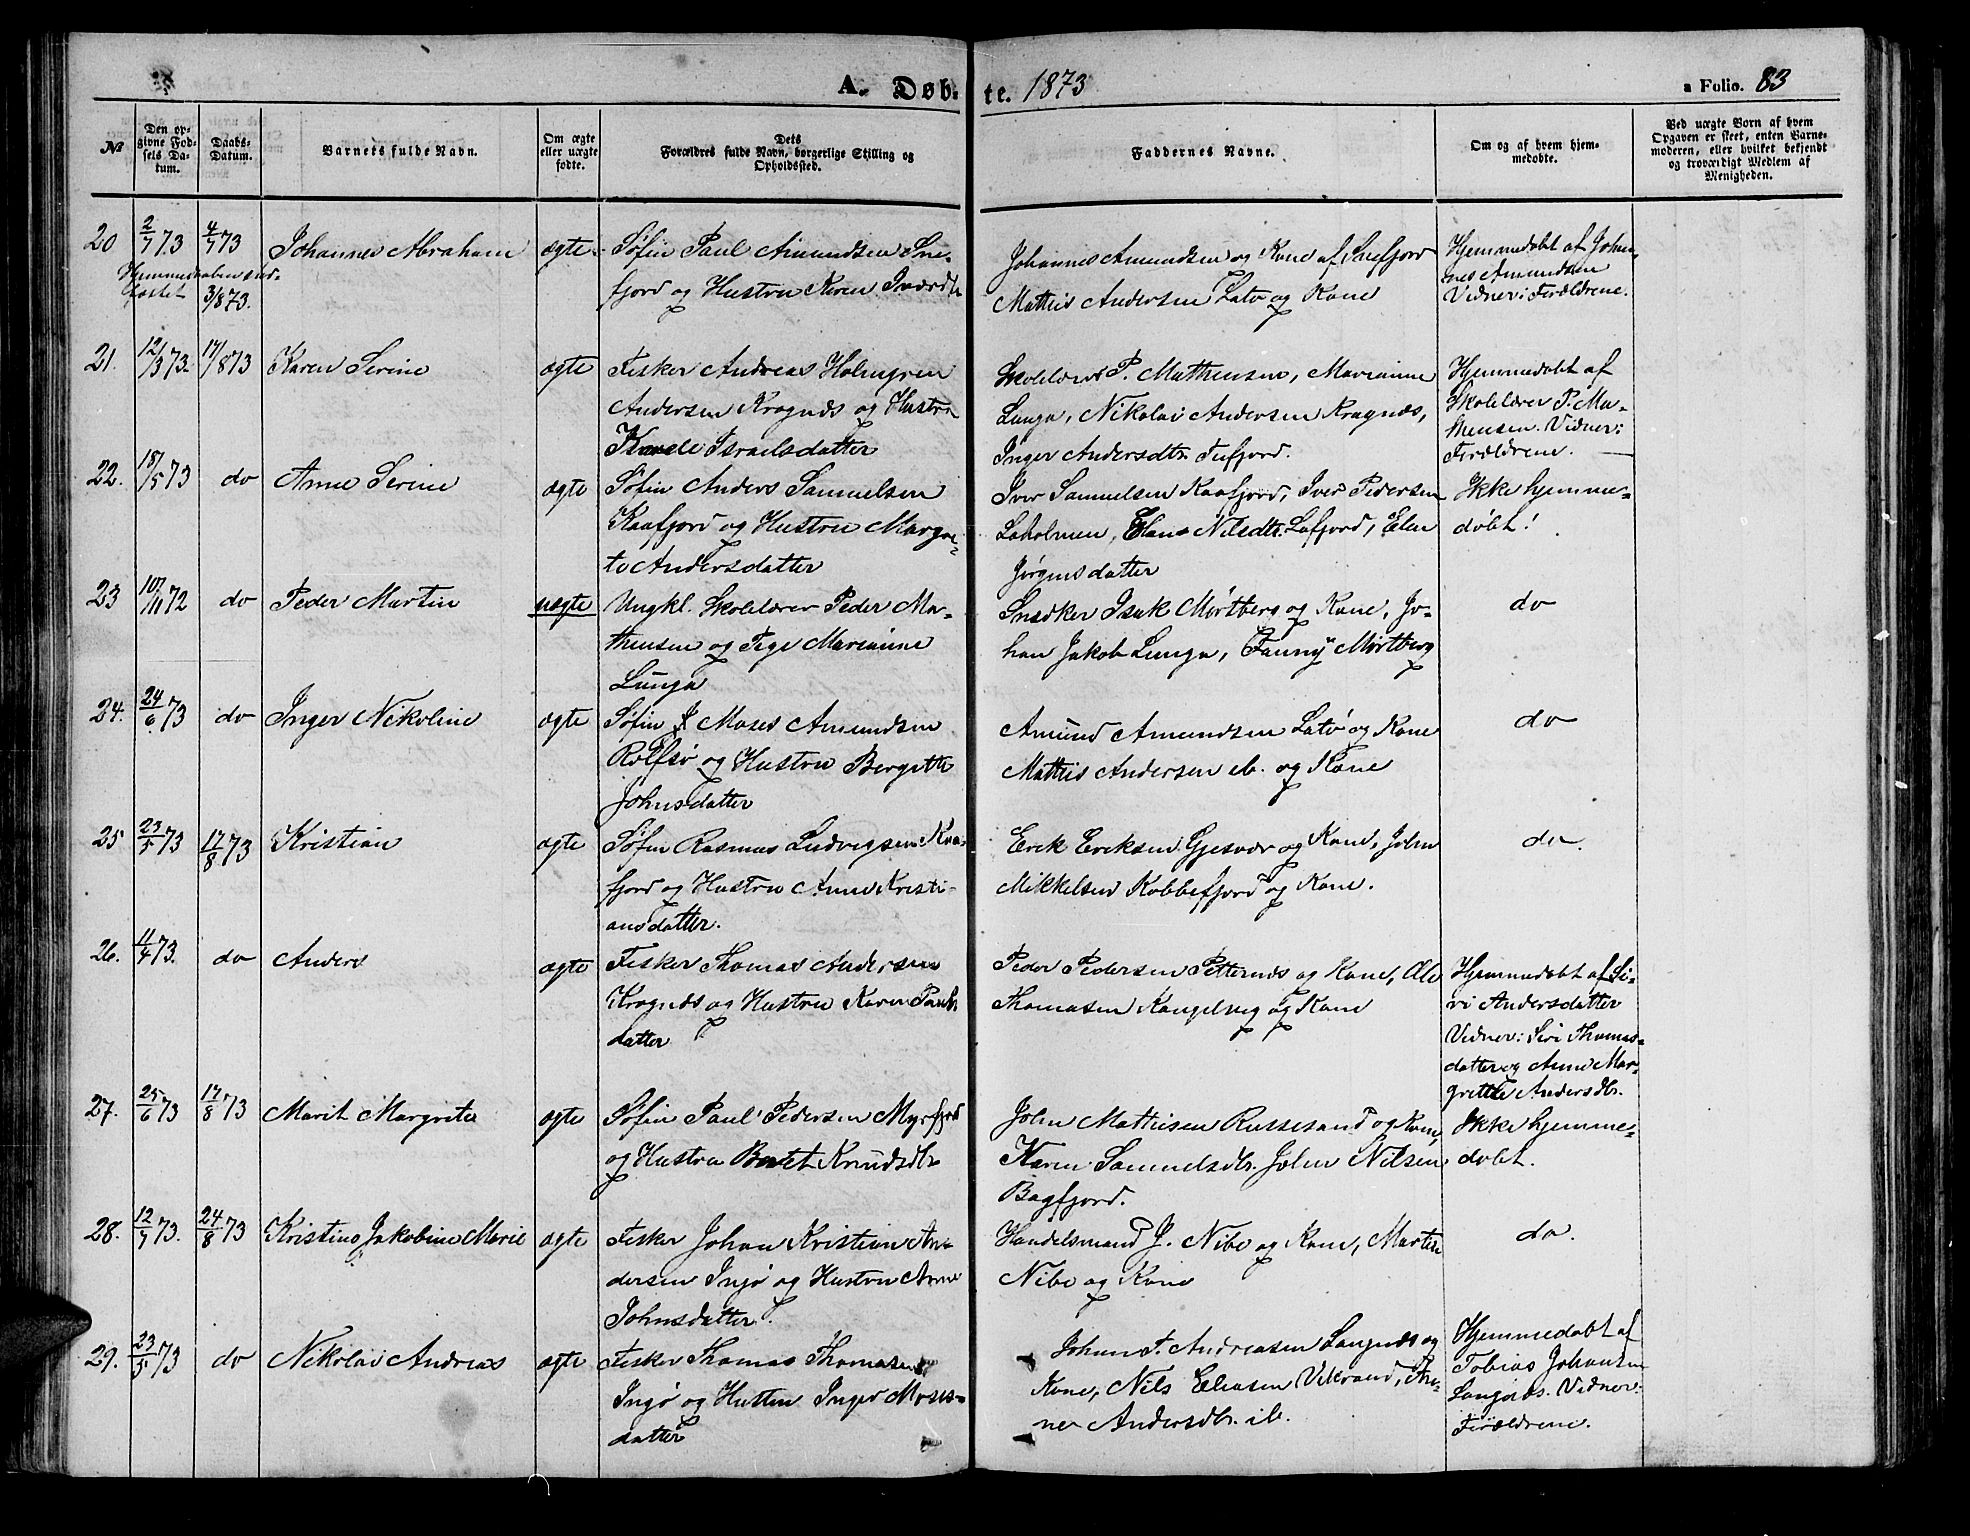 A. Døb-
te. 1873
a Folio. 83
No
Den op-
givne Fød-
sels Da-
tum.
Daabs-
Datum.
Barnets fulde Navn.
Om ægte
eller uægte
fødte.
Dets
Forældres fulde Navn, borgerlige Stilling og
Opholdssted.
Faddernes Navne.
Om og af hvem hjem-
medøbte.
Ved uægte Børn af hvem
Opgaven er skeet, enten Barne-
moderen, eller hvilket bekjendt
og troværdigt Medlem af
Menigheden.
20 2/7 73 4/7 73 Johannes Abraham ægte Søfin Paul Amundsen Sne-
fjord og Hustru Karen
Hjemmedaaben stad-
fæstet 3/873.
Johannes Amundsen og Kone af Snefjord
Mathis Andersen Latø og Kone
Hjemmedøbt af Johan-
nes Amundsen
Vidner: Forældrene.
21. 12/3 73. 17/873 Karen Serine ægte Fisker Andreas Holmgren
Andersen Kragnæs og Hustru
Israelsdatter
Skolelærer P. Mathensen, Marianne
Lunga, Nikolai Andersen Kragnæs,
Inger Andersdtr. Tufjord.
Hjemmedøbt af
Skolelærer P. Ma-
thensen. Vidner:
Forældrene.
22. 18/5 73 do Anne Serine ægte Søfin Anders Samuelsen
Kaafjord og Hustru Margre-
te Andersdatter
Iver Samuelsen Kaafjord, Iver Pedersen
Laholmen, Nilsdtr. Lafjord, Elen
Jørgensdatter
Ikke hjemme-
døbt!
23 10/11 72 do Peder Martin uægte Ungkl. Skolelærer Peder Ma-
thensen og Pige Marianne
Lunga
Snedker Isak Mørtberg og Kone, Jo-
han Jakob Lunga, Fanny Mørtberg
do
24. 24/6 73 do Inger Nikoline ægte Søfin Moses Amundsen
Rolfsø og Hustru Bergitte
Johnsdatter
Amund Amundsen Latø og Kone
Mathis Andersen ib. og Kone
do
25 23/5 73 17/8 73 Kristian ægte Søfin Rasmus Ludvigsen Kaa-
fjord og Hustru Anne Kristi-
ansdatter.
Erik Eriksen Gjesvær og Kone, John
Mikkelsen Kobbefjord og Kone.
do.
26. 11/4 73. do Anders ægte Fisker Thomas Andersen
Kragnæs og Hustru Karen Pauls
datter
Peder Pedersen Petternæs og Kone, Ole
Thomasen Kangelvig og Kone
Hjemmedøbt af Si-
ri Andersdatter
Vidner: Siri Thomas-
datter og Anne Mar-
grethe Andersdtr.
27. 25/6 73 17/8 73 Marit Margrete ægte Søfin Paul Pedersen Myrfjord
og Hustru Beret Knudsdtr
John Mathisen Russesand og Kone,
Karen Samuelsdtr. John Nilsen
Bagfjord.
Ikke hjemme-
døbt.
28. 12/7 73. 24/8 73 Kristine Jakobine Marie ægte Fisker Johan Kristian An-
dersen Ingø og Hustru Anne
Johnsdatter.
Handelsmand J. Nibe og Kone, Martin
Nibe og Kone
do.
29. 23/5 73 do Nikolai Andreas ægte Fisker Thomas Thomasen
Ingø og Hustru Inger Moses-
datter
Johan F. Andreasen Langnæs og
Kone, Nils Eliasen Vikrand,
Andersdtr. ib.
Hjemmedøbt af
Tobias Johansen
Langnæs. Vidner:
Forældrene.